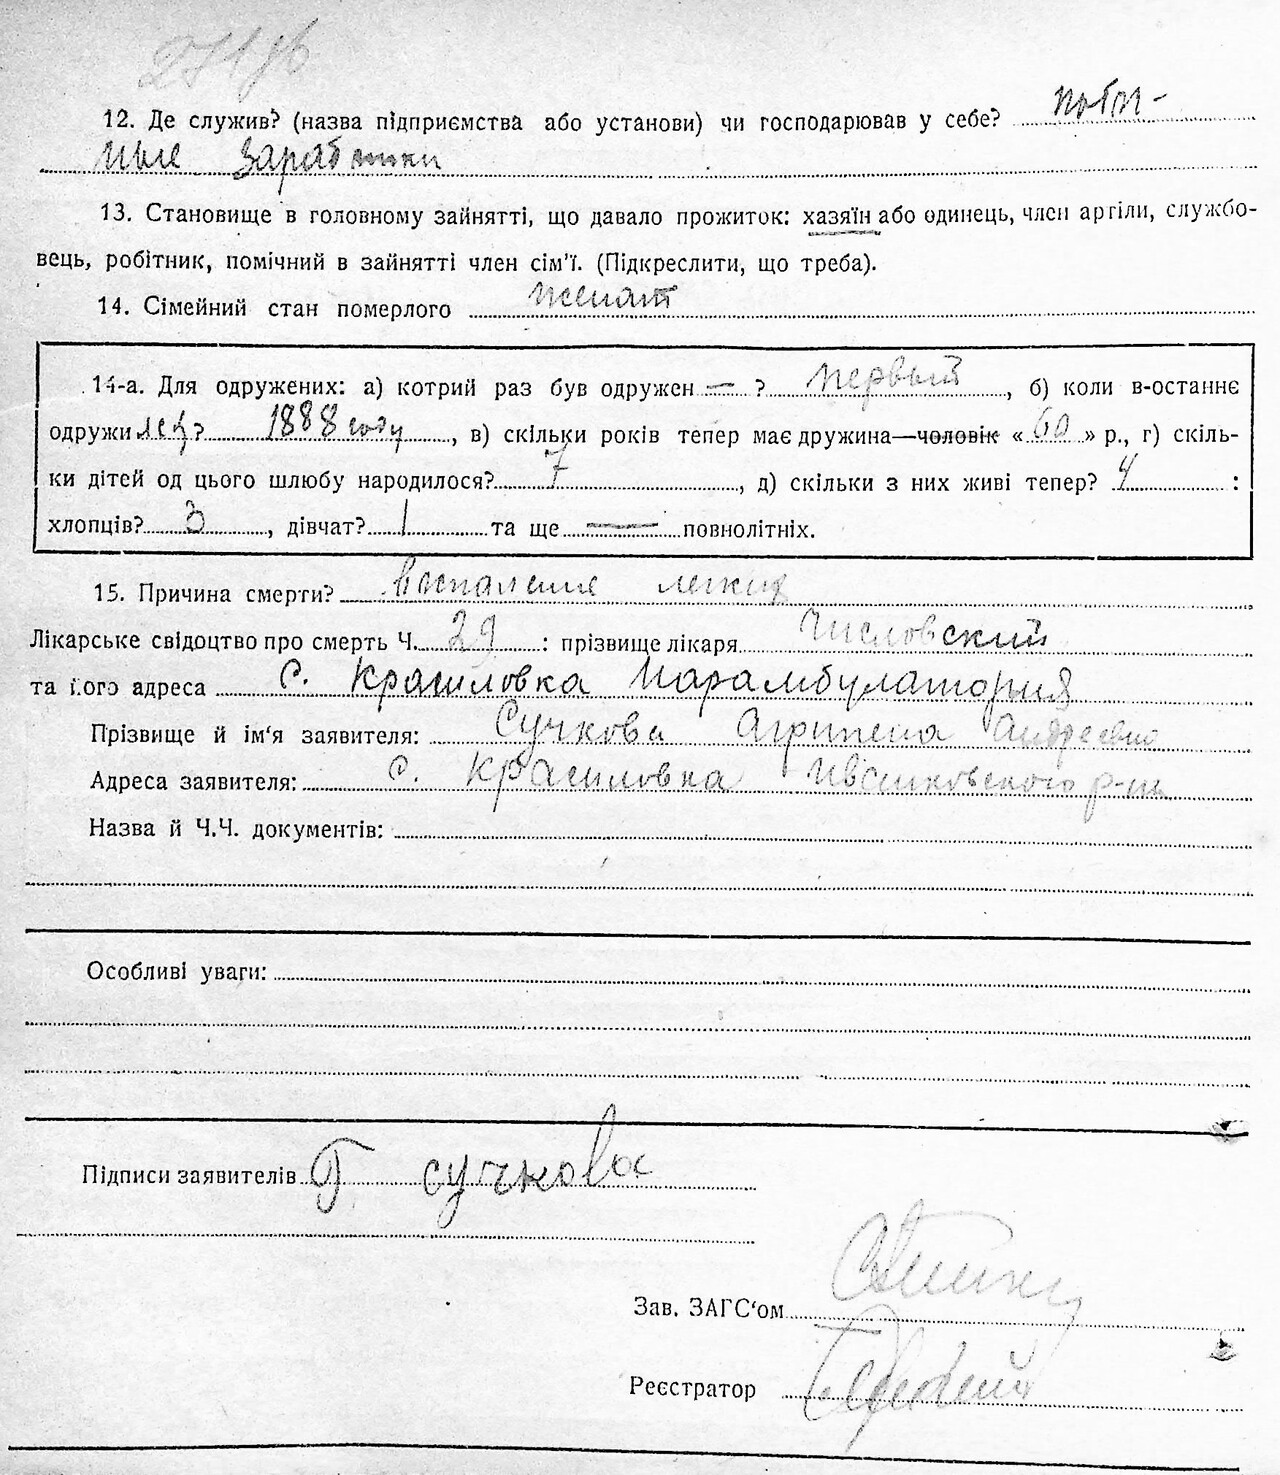 12. Де служив? (назва підприємства або установи) чи господарював у себе? побоч-
ные заработки
13. Становище в головному зайнятті, що давало прожиток: хазяїн або одинець, член артіли, службо-
вець, робітник, помічний в зайнятті член сім'ї. (Підкреслити, що треба).
14. Сімейний стан померлого женат
14-а. Для одружених: а) котрий раз був одружен — ? первый, б) коли в-останнє
одружився? 1888 году, в) скільки років тепер має дружина—чоловік «60» р., г) скіль-
ки дітей од цього шлюбу народилося? 7, д) скільки з них живі тепер? 4 :
хлопців? 3, дівчат? 1 та ще — повнолітніх.
15. Причина смерти? воспаление легких
Лікарське свідоцтво про смерть Ч. 29 : прізвище лікаря Числовский
та його адреса с. Красиловка
Прізвище й ім'я заявителя: Сучкова Агрипена Андреевна
Адреса заявителя: с. Красиловка Иванковского р-на
Назва й Ч.Ч. документів:
Особливі уваги:
Підписи заявителів Г. сучкова
Зав. ЗАГС'ом
Реєстратор